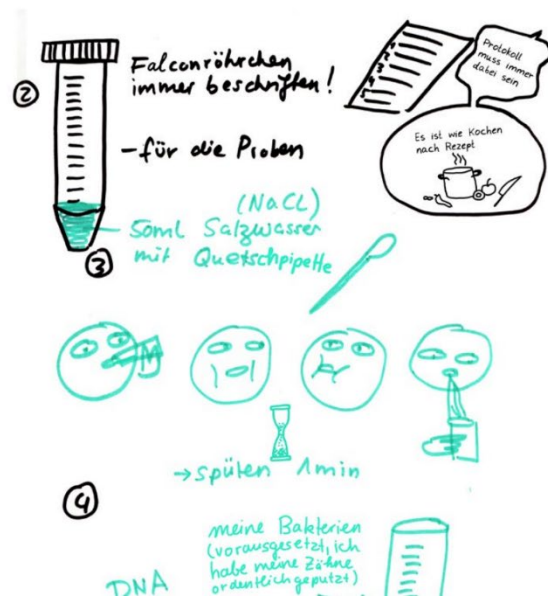 ②
Falconröhrchen
immer beschriften!
- für die Proben
Protokoll
muss immer
dabei sein
Es ist wie Kochen
nach Rezept
③
(NaCl)
50ml Salzwasser
mit Quetschpipette
→ spülen 1min
④
meine Bakterien
(vorausgesetzt, ich
habe meine Zähne
ordentlich geputzt)
DNA